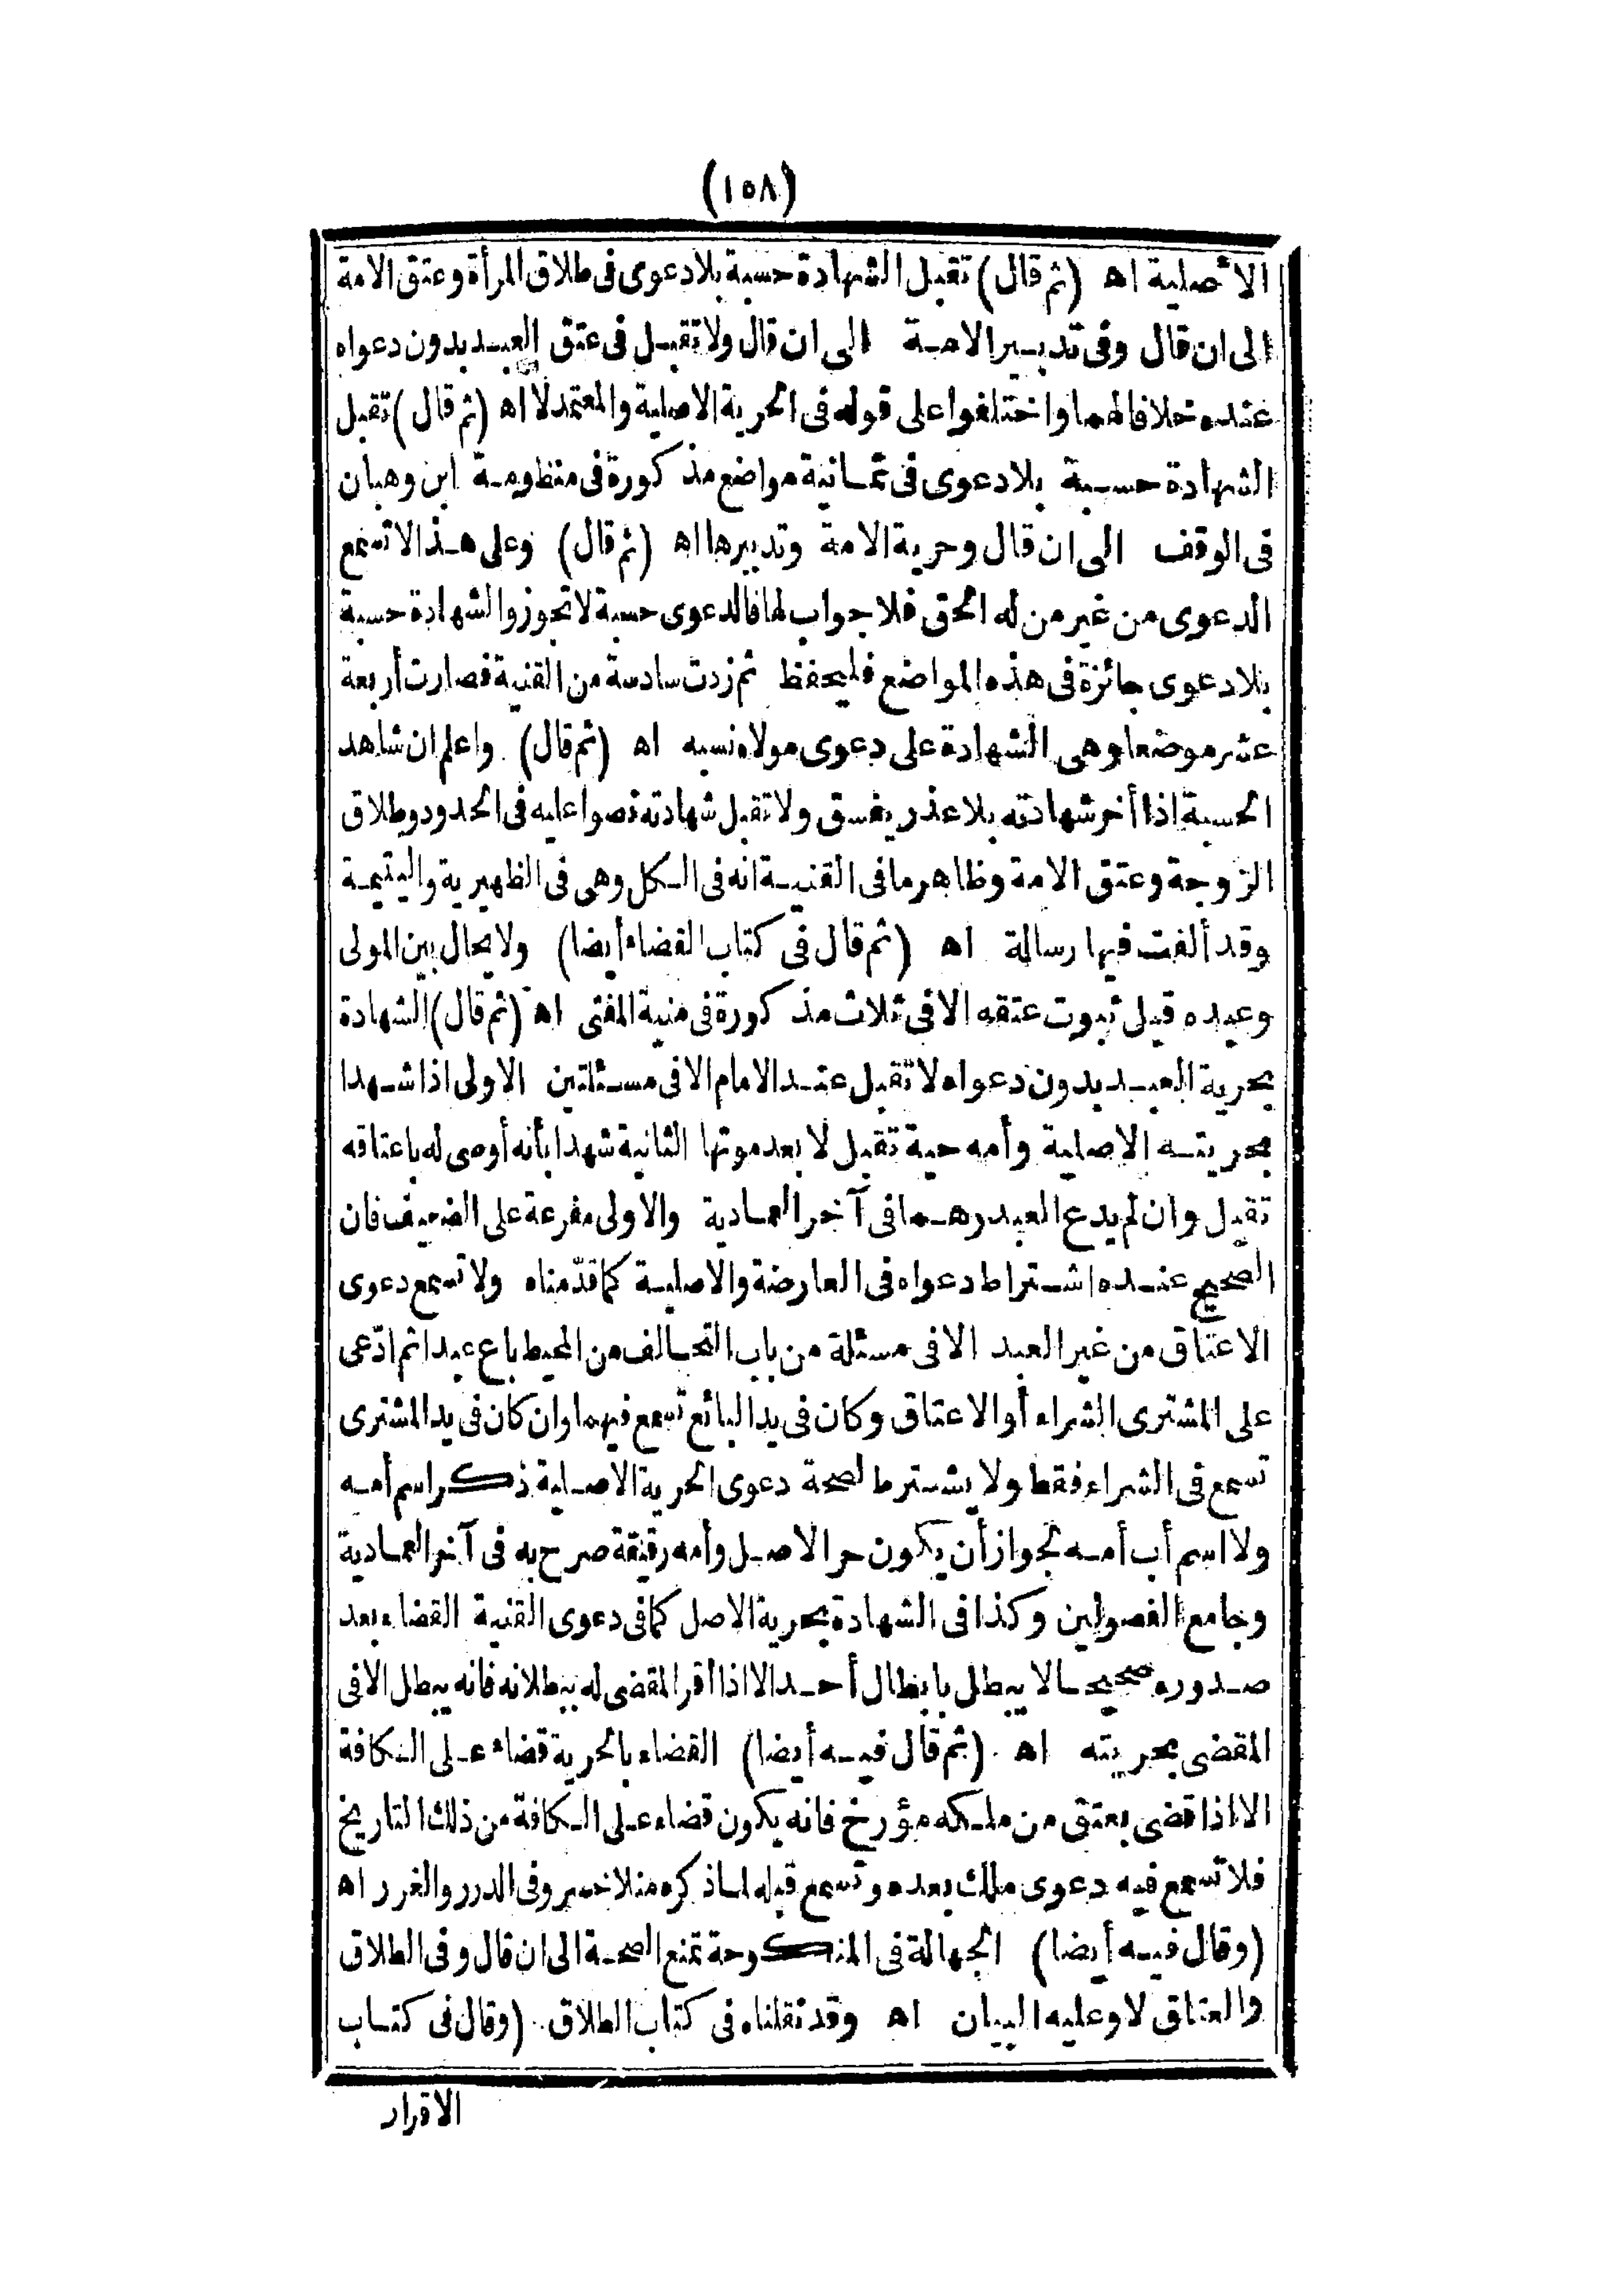 (١٥٨)
الأصلية اه (ثم قال) تقبل الشهادة حسبة بلا دعوى فى طلاق المرأة وعتق الامة
الى ان قال وفى تدبير الامة الى ان قال ولا تقبل فى عتق العبد بدون دعواه
عنده خلافا لهما واختلفوا على قوله فى الحرية الاصلية والمعتمد لا اه (ثم قال) تقبل
الشهادة حسبة بلا دعوى فى ثمانية مواضع مذكورة فى منظومة ابن وهبان
فى الوقف الى ان قال وحرية الامة وتدبيرها اه (ثم قال) وعلى هذا لا تسمع
الدعوى من غير من له الحق فلا جواب لها فالدعوى حسبة لا تجوز والشهادة حسبة
بلا دعوى جائزة فى هذه المواضع فليحفظ ثم زدت سادسة من القنية فصارت أربعة
عشر موضعا وهى الشهادة على دعوى مولاه نسبه اه (ثم قال) واعلم ان شاهد
الحسبة اذا أخر شهادته بلا عذر يفسق ولا تقبل شهادته نصوا عليه فى الحدود وطلاق
الزوجة وعتق الامة وظاهر ما فى القنية انه فى الكل وهى فى الظهيرية واليتيمة
وقد ألفت فيها رسالة اه (ثم قال فى كتاب القضاء أيضا) ولا يحال بين المولى
وعبده قبل ثبوت عتقه الا فى ثلاث مذكورة فى منية المفتى اه (ثم قال) الشهادة
بحرية العبد بدون دعواه لا تقبل عند الامام الا فى مسئلتين الاولى اذا شهدا
بحريته الاصلية وأمه حية تقبل لا بعد موتها الثانية شهدا بأنه أوصى له باعتاقه
تقبل وان لم يدع العبد وهما فى آخر العمادية والاولى مفرعة على الضعيف فان
الصحيح عنده اشتراط دعواه فى العارضة والاصلية كما قدّمناه ولا تسمع دعوى
الاعتاق من غير العبد الا فى مسئلة من باب التحالف من المحيط باع عبدا ثم ادّعى
على المشترى الشراء أو الاعتاق وكان فى يد البائع تسمع فيهما وان كان فى يد المشترى
تسمع فى الشراء فقط ولا يشترط لصحة دعوى الحرية الاصلية ذكر اسم أمه
ولا اسم أب أمه لجواز أن يكون حر الاصل وأمه رقيقة صرح به فى آخر العمادية
وجامع الفصولين وكذا فى الشهادة بحرية الاصل كما فى دعوى القنية القضاء بعد
صدوره صحيحا لا يبطل بابطال أحد الا اذا أقر المقضى له ببطلانه فانه يبطل الا فى
المقضى بحريته اه (ثم قال فيه أيضا) القضاء بالحرية قضاء على الكافة
الا اذا قضى بعتق من ملكه مؤرخ فانه يكون قضاء على الكافة من ذلك التاريخ
فلا تسمع فيه دعوى ملك بعده وتسمع قبله لما ذكره منلا خسرو فى الدرر والغرر اه
(وقال فيه أيضا) الجهالة فى المنكوحة تمنع الصحة الى ان قال وفى الطلاق
والعتاق لا وعليه البيان اه وقد نقلناه فى كتاب الطلاق (وقال فى كتاب
الاقرار